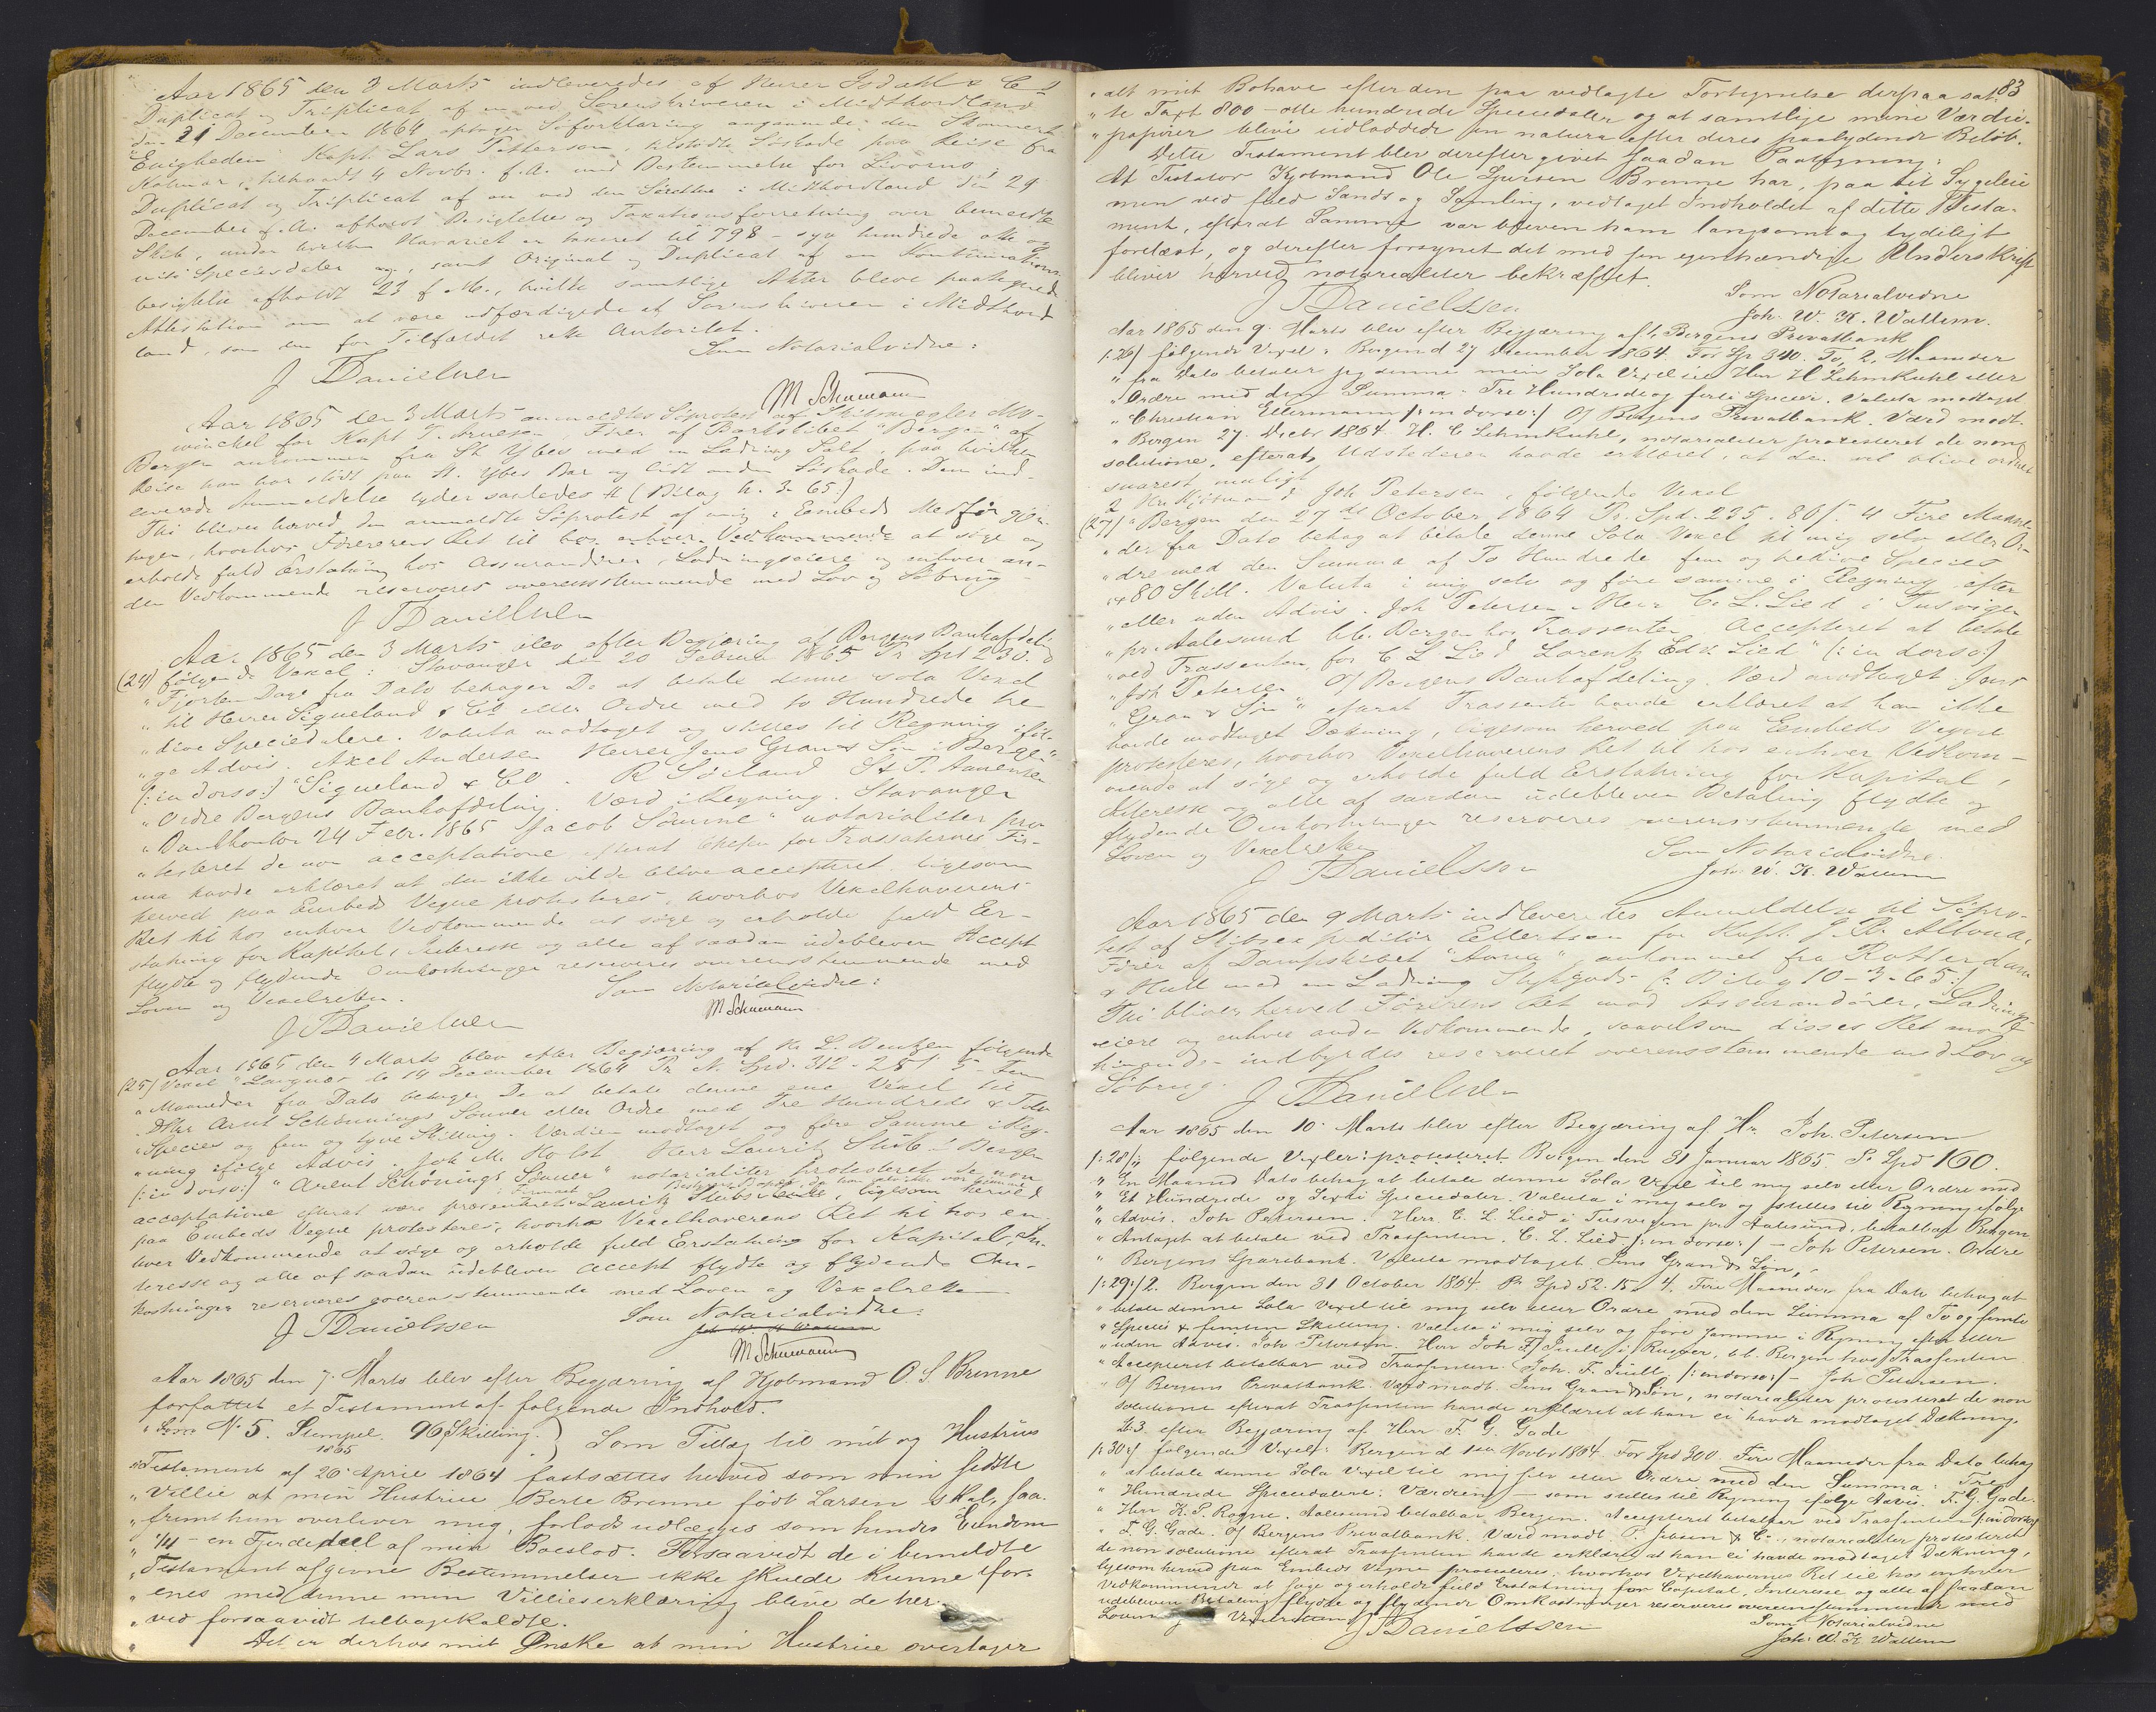 Aar 1865 den 3 Marts indleveredes af Herrer Isdahl & Co
Duplicat og Triplicat af en ved Sorenskriveren i Midthordland
den 21 December 1864 optagen Söforklaring angaaende den Skonnert
"Enigheden" Kapt. Lars Pettersen, tilstødte Söskade paa Reise fra
4 Novbr. f.A. med Bestemmelse for Livorno,
Duplicat og Triplicat af en ved den i Midthordland den 29
December f.A. afholdt Besigtelse og Taxationsforretning over bemeldte
Skib, under hvilken Havariet er taxeret til 798 - syv hundrede otte og
niti Speciesdaler og, samt Original og Duplicat af en Kontinuations-
besigtelse afholdt 23 f.M., hvilke samtlige Akter bleve paategnede
Attestation om at være udfærdigede af Sorenskriveren i Midthord-
land, som den for Tilfældet rette Autoritet.
Som Notarialvidne:
J Danielssen
M Schumann
Aar 1865 den 3 Marts anmeldtes Söprotest af Skibsmægler Mo-
winckel for Kapt T. Arnesen, Förer af Barkskibet "Bergen" af
Bergen ankommen fra St Ybes med en Ladning Salt, paa hvilken
Reise han har stödt paa St. Ybes Bar og lidt anden Söskade. Den ind-
leverede Anmeldelse lyder saaledes (Bilag h. 3-65:)
Thi bliver herved den anmeldte Söprotest af mig i Embeds Medför
tagen, hvorhos Förerens Ret til hos enhver Vedkommende at söge og
erholde fuld Erstatning hos Assurandörer, Ladningseiere og enhver an-
den Vedkommende reserveres overensstemmende med Lov og Söbrug
J Danielssen
Aar 1865 den 3 Marts blev efter Begjæring af Bergens Bankafdeling
(24) følgende Vexel: Stavanger den 20 Februar 1865 Pr Spd 230.
"Fjorten Dage fra Dato behager De at betale denne sola Vexel
"til Herrer Sigueland & Co eller Ordre med to Hundrede tre-
"dive Speciedalere. Valuta modtaget og stilles til Regning iföl-
"ge Advis. Axel Andersen Herrer Jens Gran & Sön i Bergen"
(:in dorso:) "Sigueland & Co. R Sörland St P. Aanensen
"Ordre Bergens Bankafdeling. Værd i Regning. Stavanger
"Bankkontor 24 Febr. 1865 Jacob Sömme" notarialiter pro-
"testeret de non acceptatione efterat Chefen for Trassaternes Fir-
ma havde erklæret at den ikke vilde blive accepteret ligesom
herved paa Embeds Vegne protesteres, hvorhos Vexelhaverens
Ret til hos enhver Vedkommende at söge og erholde fuld Er-
statning for Kapital, Interesse og alle af saadan udebleven Accept
flydte og flydende Omkostninger reserveres overensstemmende med
Loven og Vexelretten.
Som Notarialvidne:
J Danielssen
M Schumann
Aar 1865 den 4 Marts blev efter Begjæring af Hr L. Bentzen følgende
(25) Vexel "Langnæs de 14 December 1864 Pr N. Spd. 312 - 25 f 5 - Fem
"Maaneder fra Dato behager De at betale denne ene Vexel til
"Dhrr Arnt Schönnings Sönner eller Ordre med Tre Hundrede & Tolv
"Species og fem og tyve Skilling. Værdien modtaget og före Samme i Reg-
"ning ifölge Advis. Joh M. Holst Herr Lauritz Stub i Bergen
(:in dorso:) "Arent Schönings Sönner" notarialiter protesteret de non
acceptatione efterat være præsenteret Firmaet Lauritz Stubs Enke, ligesom herved
paa Embeds Vegne protesteres, hvorhos Vexelhaverens Ret til hos en-
hver Vedkommende at söge og erholde fuld Erstatning for Kapital, In-
teresse og alle af saadan udebleven Accept flydte og flydende Om-
kostninger reserveres overensstemmende med Loven og Vexelretten
Som Notarialvidne:
J Danielssen
Joh W. K Wallem
M Schumann
Aar 1865 den 7. Marts blev efter Begjæring af Kjöbmand O. S. Brenne
forfattet et Testament af følgende Indhold.
No 5. Stempel. 96 Skilling.
1865
Som Tillæg til mit og Hustrues
"Testament af 26 April 1864 fastsættes herved som min sidste
"Villie at min Hustrue Berte Brenne født Larsen skal, saa-
"fremt hun overlever mig, forlods udlægges som hendes Eiendom
"1/4 - en Fjerdedeel af min Boeslod. Forsaavidt de i bemeldte
"Testament afgivne Bestemmelser ikke skulde kunne for-
"enes med denne min Villieserklæring blive de her-
"ved forsaavidt tilbagekaldte.
" Det er derhos mit Ønske at min Hustrue overtager
83
"alt mit Bohave efter den paa vedlagte Fortegnelse derpaa sat-
"te Taxt 800 - otte hundrede Speciedaler og at samtlige mine Værdie-
"papirer blive udloddede in natura efter deres paalydende Beløb.
Dette Testament blev derefter givet saadan Paategning:
At Testator Kjøbmand Ole Sjursen Brenne har, paa sit Sygeleie
men ved fuld Sands og Samling, vedtaget Indholdet af dette Testa-
ment, efterat Samme var bleven ham langsomt og tydeligt
forelæst, og derefter forsynet det med sin egenhændige Underskrift
bliver herved notarialiter bekræftet.
J Danielssen
Som Notarialvidne
Joh. W. K. Wallem.
Aar 1865 den 9. Marts blev efter Begjæring af 1, Bergens Privatbank
(:26) følgende Vexel: Bergen d 27 December 1864. For Sp 340. To, 2, Maaneder
"fra Dato betaler jeg denne min Sola Vexel til Herr H Lehmkuhl eller
"Ordre med den Summa - Tre Hundrede og forti Specier. Valuta modtaget
"Christian Ellermann (:in dorso:) O/ Bergens Privatbank. Værd modt.
"Bergen 27. Decbr 1864. H. C Lehmkuhl, notarialiter protesteret de non
solutione, efterat Udstederen havde erklæret, at den vil blive ordnet
snarest muligt
2 Hr Kjöbmand Joh Petersen, følgende Vexel
(27) "Bergen den 27de October 1864 Pr. Spd. 235. 80 f. 4 Fire Maane-
"der fra Dato behag at betale denne Sola Vexel til mig selv eller Or-
"dre med den Summa af To Hundrede fem og tredive Species
"& 80 Skill. Valuta i mig selv og före samme i Regning efter
"eller uden Advis. Joh Petersen Herr C. L. Lied i Tusvigen
"pr Aalesund btl. Bergen hos Trassenten Accepteret at betale
"ved Trassenten, for C L Lied Lorentz Edv. Lied" (:in dorso:)
"Joh Petersen O/ Bergens Bankafdeling. Værd modtaget. Jens
"Gran & Sön" efterat Trassenten havde erklæret at han ikke
havde modtaget Dækning, ligesom herved paa Embeds Vegne
protesteres, hvorhos Vexelhaverens Ret til hos enhver Vedkom-
mende at söge og erholde fuld Erstatning for Kapital,
Interesse og alle af saadan udebleven Betaling flydte og
flydende Omkostninger reserveres overensstemmende med
Loven og Vexelretten
Som Notarialvidne.
J Danielssen
Joh. W. K. Wallem
Aar 1865 den 9 Marts indleveredes Anmeldelse til Söpro-
test af Skibsexpeditör Ellertsen for Kapt.
Förer af Dampskibet "Anna", ankommet fra Rotterdam
& Hull med en Ladning Stykgods (: Bilag 10-3-65:)
Thi bliver herved Förerens Ret mod Assurandörer, Ladnings-
eiere og enhver anden Vedkommende, saavelsom disses Ret mod
hinanden indbyrdes reserveret overensstemmende med Lov og
Söbrug.
J Danielssen
Aar 1865 den 10. Marts blev efter Begjæring af Hr. Joh. Petersen
(:28:) følgende Vexler: protesteret Bergen den 31 Januar 1865. Pr Spd 160.
"En Maaned Dato behag at betale denne Sola Vexel til mig selv eller Ordre med
"Et Hundrede og Sexti Speciedaler. Valuta i mig selv og stilles til Regning ifølge
"Advis. Joh Petersen. Herr C. L. Lied i Tusvigen pr Aalesund, betalbar Bergen
"Antaget at betale ved Trassenten. C. L. Lied (:in dorso:) - Joh Petersen. Ordre
"Bergens Sparebank. Valuta modtaget. Jens Gran & Søn,
(:29:) 2. Bergen den 31 October 1864. Pr Spd 52. 15. 4. Fire Maaneder fra Dato behag at
"betale denne Sola Vexel til mig selv eller Ordre med den Summa af To og femti
"Species & femten Skilling. Valuta i mig selv og före samme i Regning efter eller
"uden Advis. Joh Petersen. Herr Joh F. Juell i btl. Bergen hos Trassenten
"Accepteret betalbar ved Trassenten. Joh. F. Juell, (:in dorso:) - Joh Petersen.
"O/ Bergens Privatbank. Værd modt. Jens Gran & Søn, notarialiter protesteret de non
solutione efterat Trassenten havde erklæret at han ei havde modtaget Dækning.
No 3. efter Begjæring af Herr F. G. Gade
(:30:) følgende Vexel: Bergen d 1ste Novbr 1864. For Spd 300. Fire Maaneder fra Dato behag
"at betale denne Sola Vexel til mig selv eller Ordre med den Summa: Tre
"Hundrede Speciedalere. Værdien - som stilles til Regning ifølge Advis. F. G. Gade.
"Herr K. P. Aalesund betalbar Bergen. Accepteret betalbar ved Trassenten (:in dorso:)
"F. G. Gade. O/ Bergens Privatbank. Værd modt. P. Jebsen & Co., notarialiter protesteret
de non solutione efterat Trassenten havde erklæret at han ei havde modtaget Dækning,
ligesom herved paa Embeds Vegne protesteres; hvorhos Vexelhavernes Ret til hos enhver
Vedkommende at søge og erholde fuld Erstatning for Capital, Interesse og alle af saadan
udebleven Betaling flydte og flydende Omkostninger reserveres overensstemmende med
Loven og Vexelretten
J Danielssen
Som Notarialvidne
Joh: W. K. Wallem